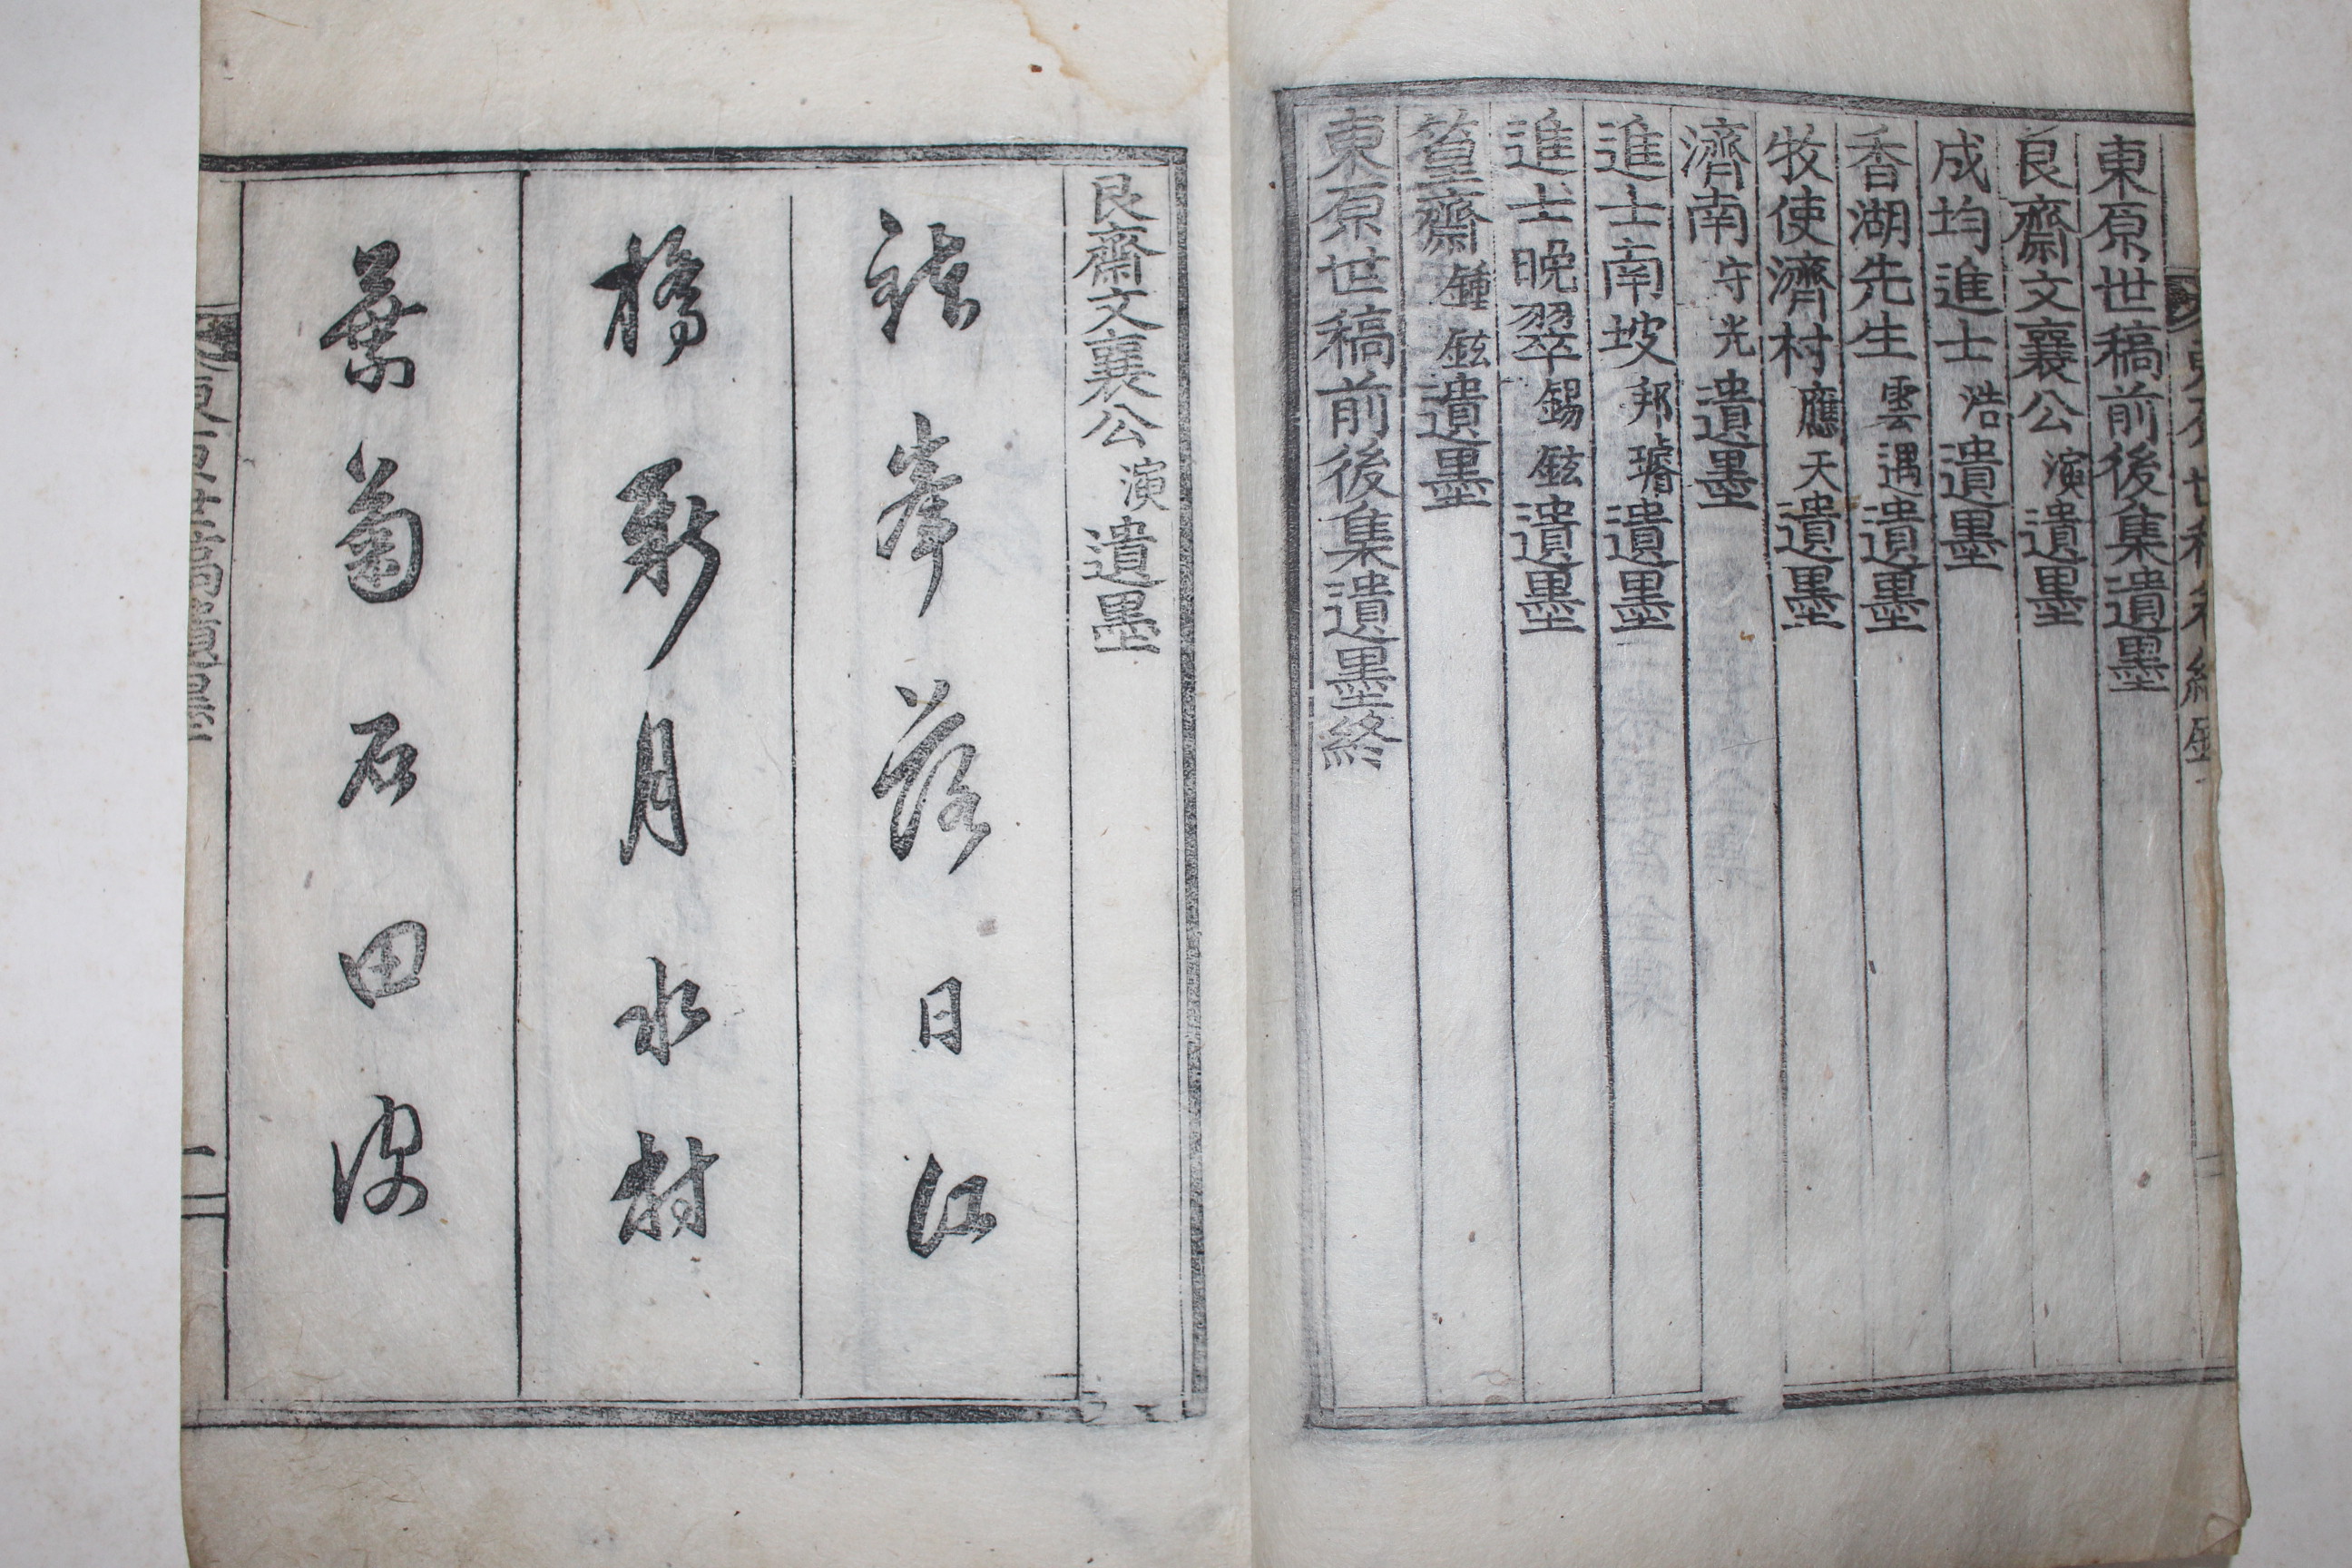 東原世稿前後集遺墨
艮齋文襄公演遺墨
成均進士浩遺墨
香湖先生雲遇遺墨
牧使濟村應天遺墨
濟南守光遺墨
進士南坡邦璿遺墨
進士晚翠錫鉉遺墨
篁齋鍾鉉遺墨
東原世稿前後集遺墨終
艮齋文襄公演遺墨
峯落日江
橋新月水村
葉菊石田